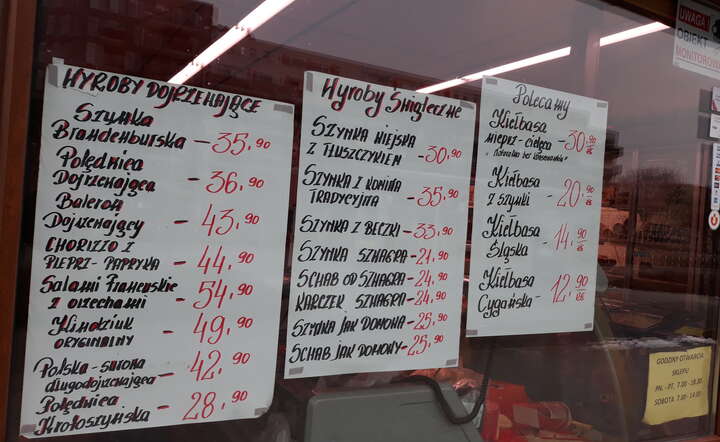 WYROBY DOJRZEWAJĄCE
Szynka
Brandenburska - 35,90
Polędwica
Dojrzewająca - 36,90
Baleron
Dojrzewający - 43,90
CHORIZZO Z
PIEPRZ-PAPRYKA - 44,90
Salami Francuskie
z orzechami - 54,90
Kindziuk
ORYGINALNY - 49,90
Polska-surowa
długodojrzewająca - 42,90
Polędwica
Krotoszyńska - 28,90
Wyroby Świąteczne
SZYNKA WIEJSKA
Z TŁUSZCZYKIEM - 30,90
SZYNKA Z KONINA
TRADYCYJNA - 35,90
SZYNKA Z BECZKI - 33,90
SZYNKA SZWAGRA - 24,90
SCHAB OD SZWAGRA - 24,90
KARCZEK SZWAGRA - 24,90
SZYNKA JAK DOMOWA - 25,90
SCHAB JAK DOMOWY - 25,90
Polecamy
Kiełbasa
wieprz-cielęca - 30,90
Kiełbasa
z szynki - 20,90
Kiełbasa
Śląska - 14,90
Kiełbasa
Cygańska - 12,90
UWAGA!
OBIEKT
MONITOROW
GODZINY OTWARCIA
SKLEPU
PN.-PT. 7.00-18.30
SOBOTA 7.00-14.00